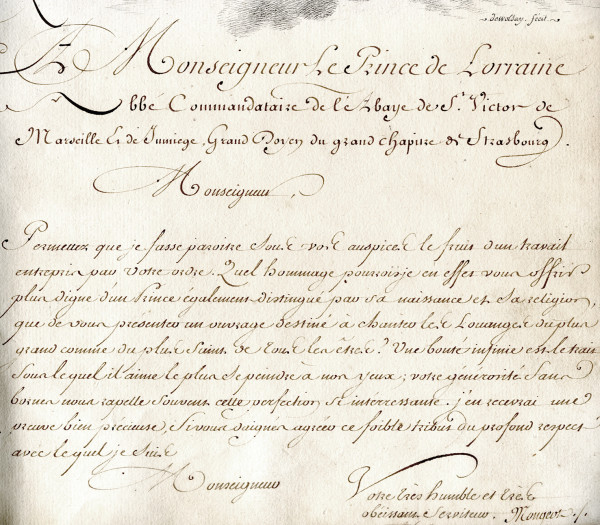 dewolbay. fecit.
A Monseigneur Le Prince de Lorraine
Abbé Commandataire de l'Abaye de St. Victor de
Marseille Et de Jumiege, Grand Doyen du grand chapitre de Strasbourg.
Monseigneur
Permettez que je fasse paroitre sous vos auspices le fruit d'un travail
entrepris par votre ordre. Quel hommage pourrois-je en effet vous offrir
plus digne d'un Prince également distingué par sa naissance et sa religion,
que de vous présenter un ouvrage destiné à chanter les Louanges du plus
grand comme du plus Saint de tous les êtres? Une bonté infinie est le trait
sous lequel il aime le plus se peindre à nos yeux; votre générosité sans
bornes nous rapelle souvent cette perfection si interressante. j'en recevrai une
preuve bien précieuse, si vous daignez agréer ce foible tribut du profond respect
avec lequel je suis
Monseigneur
Votre très humble et très
obeissant Serviteur. Mongeot